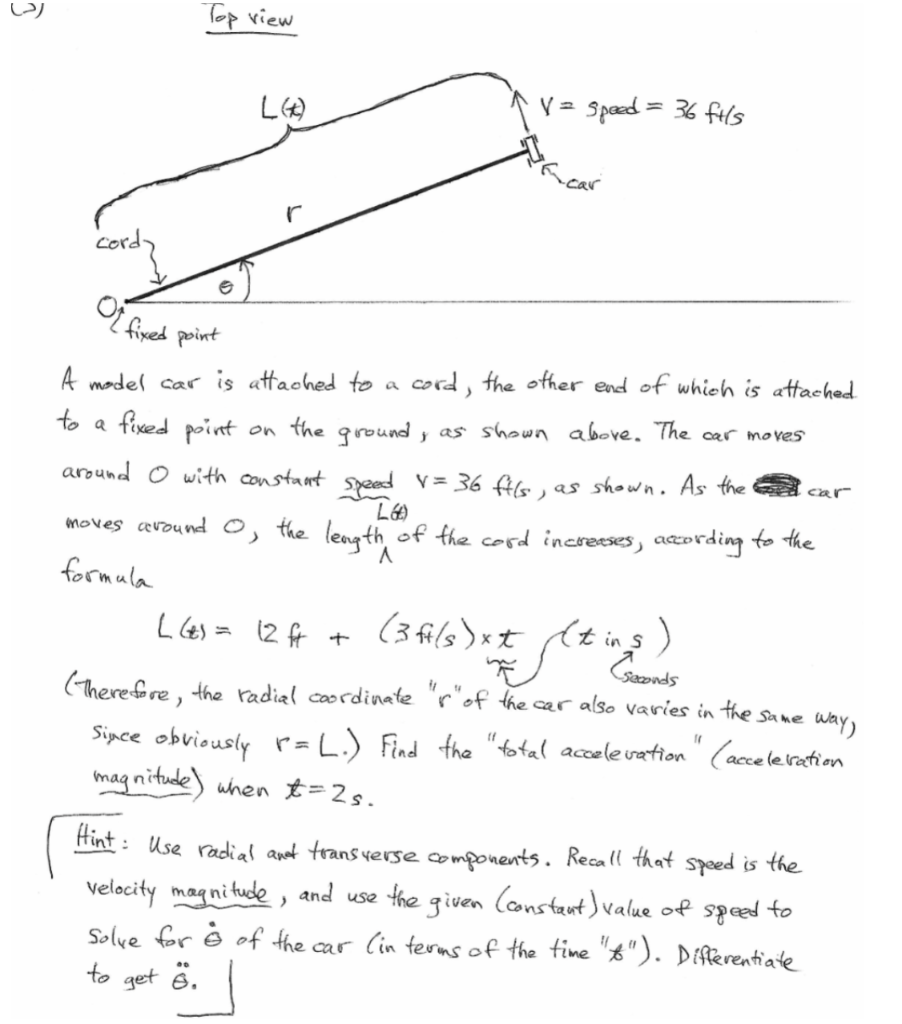 (3)
Top view
L(t)
V = speed = 36 ft/s
car
r
cord
θ
O
fixed point
A model car is attached to a cord, the other end of which is attached
to a fixed point on the ground, as shown above. The car moves
around O with constant speed V = 36 ft/s, as shown. As the car
L(t)
moves around O, the length ^ of the cord increases, according to the
formula
L(t) = 12 ft + (3 ft/s) x t (t in s)
seconds
(Therefore, the radial coordinate "r" of the car also varies in the same way,
since obviously r = L.) Find the "total acceleration" (acceleration
magnitude) when t = 2 s.
Hint: Use radial and transverse components. Recall that speed is the
velocity magnitude, and use the given (constant) value of speed to
solve for θ̇ of the car (in terms of the time "t"). Differentiate
to get θ̈.